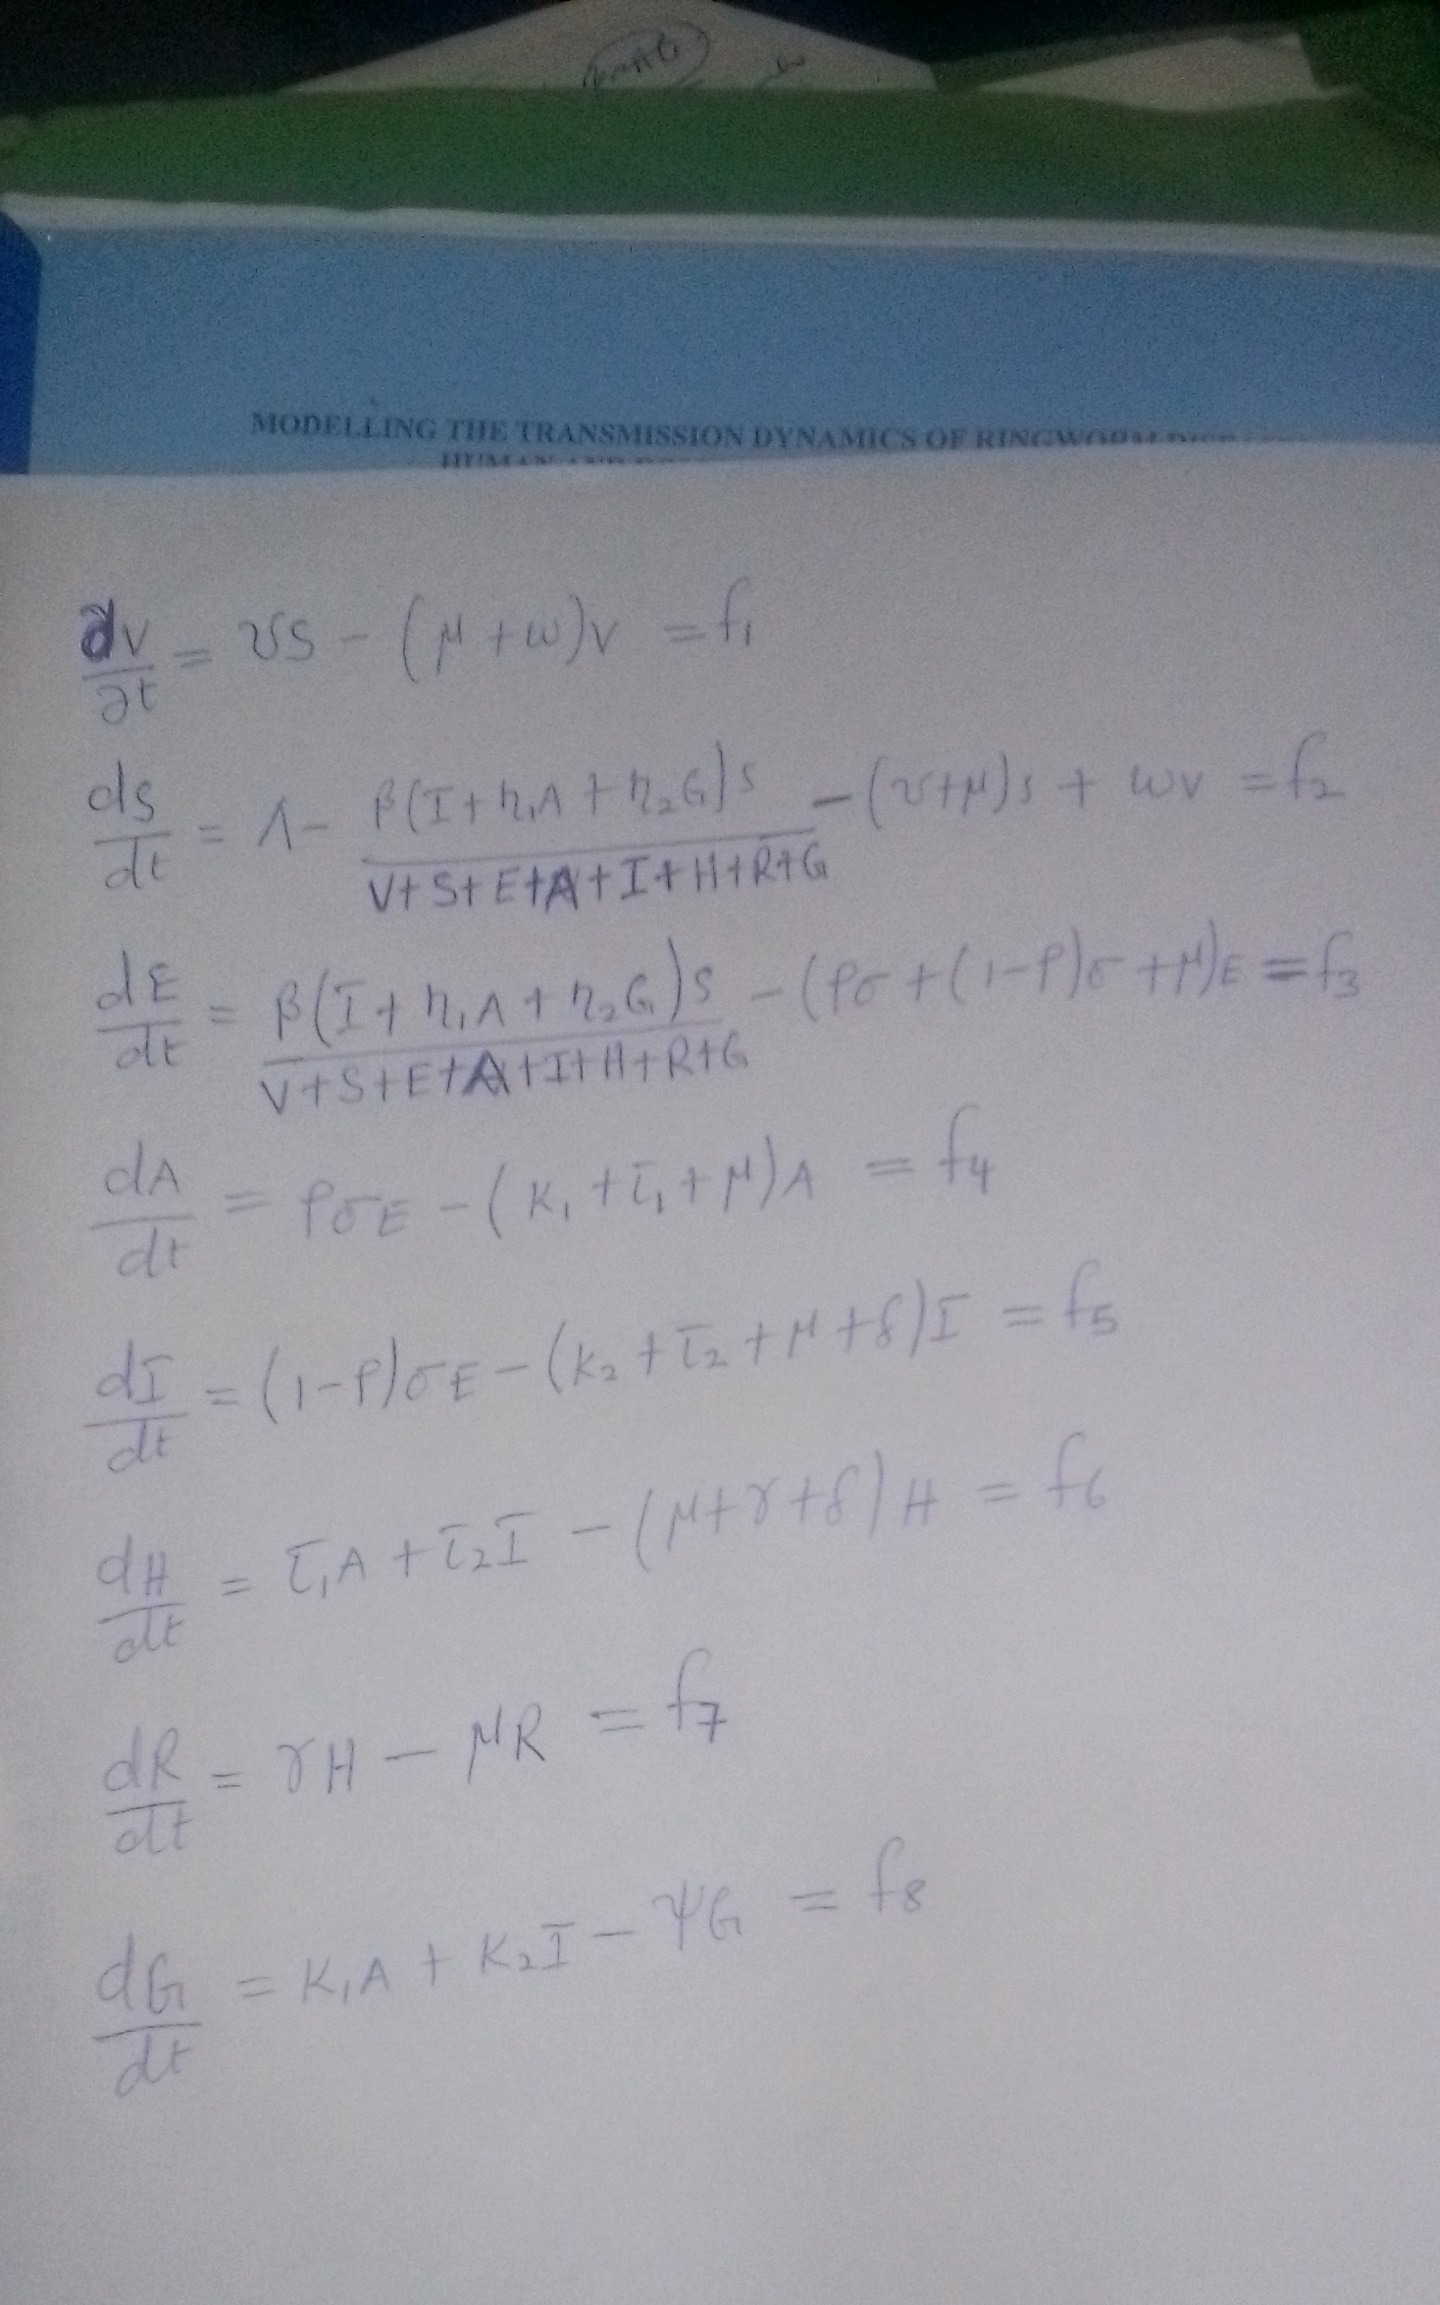 MODELLING THE TRANSMISSION DYNAMICS OF RINGWORM
HUMAN AND
dV/dt = υS - (μ + ω)V = f₁
dS/dt = Λ - β(I + η₁A + η₂G)S / V+S+E+A+I+H+R+G - (υ+μ)S + ωV = f₂
dE/dt = β(I + η₁A + η₂G)S / V+S+E+A+I+H+R+G - (ρσ + (1-ρ)σ + μ)E = f₃
dA/dt = ρσE - (K₁ + τ₁ + μ)A = f₄
dI/dt = (1-ρ)σE - (K₂ + τ₂ + μ + δ)I = f₅
dH/dt = τ₁A + τ₂I - (μ + γ + δ)H = f₆
dR/dt = γH - μR = f₇
dG/dt = K₁A + K₂I - ψG = f₈